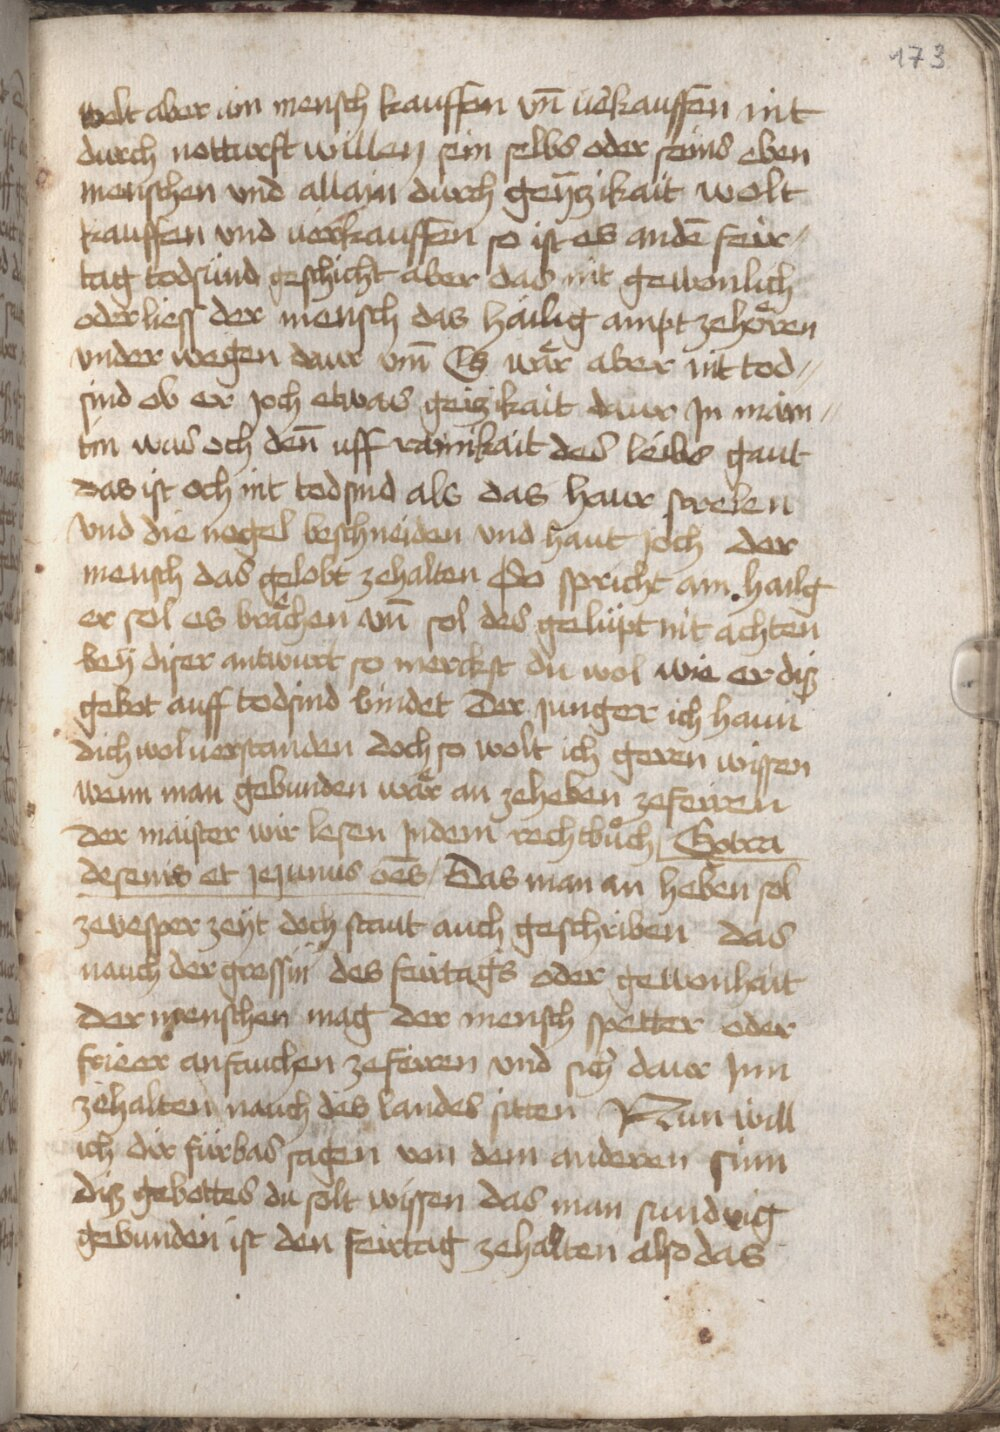 173
welt aber ain mensch kauffen vn̄ u̔kauffen nit
durch notturft willen sein selbs oder seins eben
menschen vnd allain durch geÿtzikait wolt
kauffen vnd uerkauffen so ist es andē feir⸗
tag todsünd geschicht aber das nit gewonlich
oder liess der mensch das hailig ampt zehoͤren
vnder wegen daur vm̄ Es waͤr aber nit tod⸗
sind ob er joch etwas geitzikait daur jn main⸗
tin was och den̄ uff rainikait des leibs gaut
das ist och nit todsind als das haur strelen
vnd die negel beschneiden vnd haut joch der
mensch das gelobt zehalten So spricht ain hailg
er sol es braͤchen vn̄ sol des gelüpt nit achten
beÿ diser antwurt so merckst du wol wie er diß
gebot auff todsind bindet Der junger ich haun
dich wol uerstanden doch so wolt ich geren wissen
wenn man gebunden waͤr an zeheben zefeiren
Der maister wir lesen jndem rechtbuͦch Extra
de feriis et jejunus oēs Das man an heben sol
zevesper zeÿt doch staut auch geschriben das
nauch der grossin des feirtags oder gewonhait
der menschen mag der mensch spetter oder
frieer anfauchen zefeiren vnd sich daur jnn
zehalten nauch des landes sitten Nun will
ich dir fürbas sagen von dem anderen sinn
diß gebottes du solt wissen das man sundrig
gebunden ist den feirtag zehalten also das